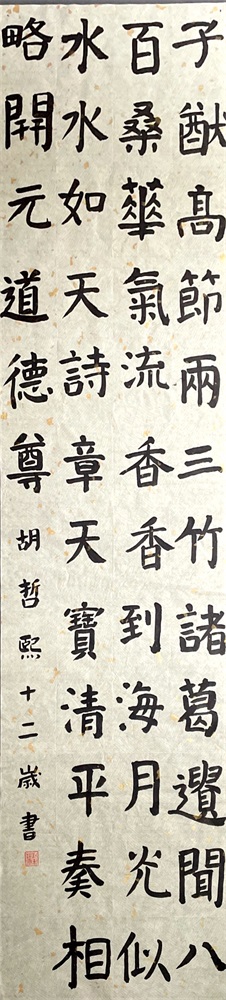 子猷髙節兩三竹諸葛遺聞八
百桑華氣流香香到海月光似
水水如天詩章天寶清平奏相
略開元道德尊 胡哲熙十二歲書